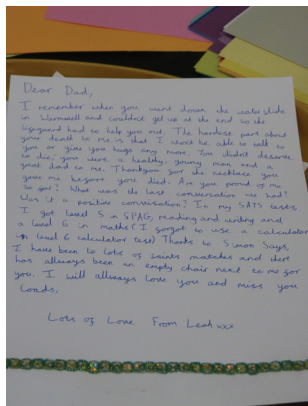 Dear Dad,
I remember when you went down the waterslide
in Warmwell and couldn't get up at the end so the
lifeguard had to help you out. The hardest part about
your death to me is that I won't be able to talk to
you or give you hugs any more. You didn't deserve
to die, you were a healthy, young man and a
great dad to me. Thankyou for the necklace you
gave me before you died. Are you proud of me
so far? What was the last conversation we had?
Was it a positive conversation? In my SATS tests,
I got level 5 in SPAG, reading and writing and
a level 6 in maths (I forgot to use a calculator
in level 6 calculator test) Thanks to Simon Says,
I have been to lots of saints matches and there
has allways been an empty chair next to me for
you. I will allways love you and miss you
loads,
Lots of Love From Leah xxx